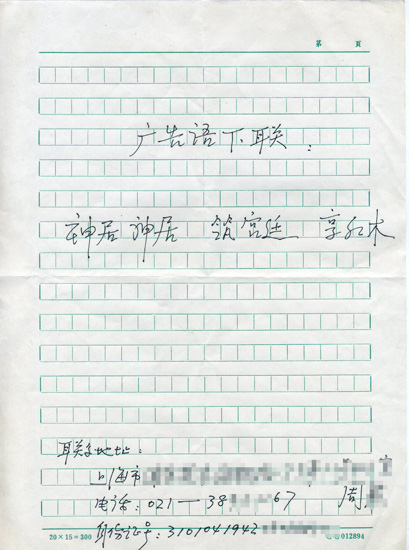 第 頁
广告语下联:
神居 神居 筑宫廷 享红木
联系地址:
上海市 室
电话: 021—38 67 周
身份证号: 3101041942
20×15=300 012894